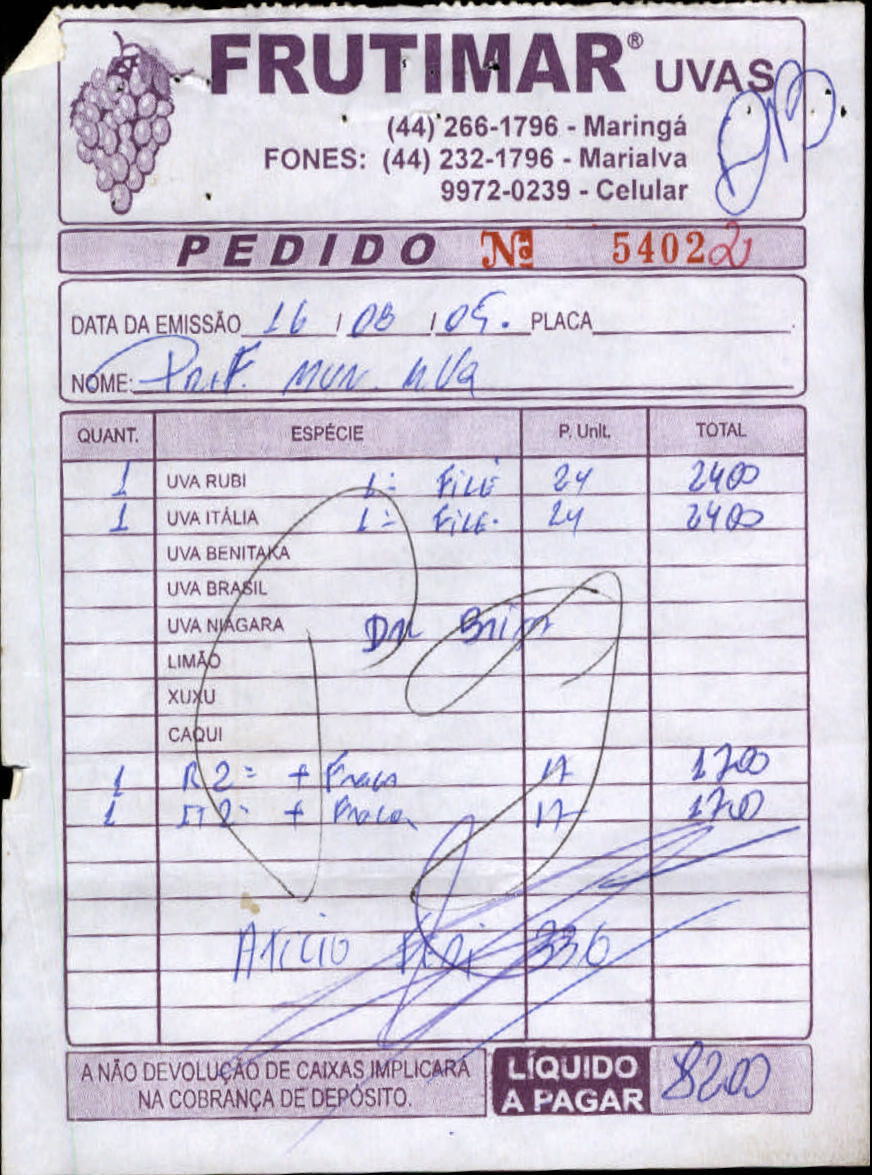 FRUTIMAR® UVAS
(44) 266-1796 - Maringá
FONES: (44) 232-1796 - Marialva
9972-0239 - Celular
PEDIDO Nº 54022
DATA DA EMISSÃO 16 / 08 / 05. PLACA
NOME: Pref. Mun.
QUANT. ESPÉCIE P. Unit. TOTAL
1 UVA RUBI 1= FILÉ 24 2400
1 UVA ITÁLIA 1= FILÉ. 24 2400
UVA BENITAKA
UVA BRASIL
UVA NIÁGARA
LIMÃO
XUXU
CAQUI
1 R2= + Fraca 17 1700
1 IT2= + Fraca 17 1700
336
A NÃO DEVOLUÇÃO DE CAIXAS IMPLICARÁ
NA COBRANÇA DE DEPÓSITO.
LÍQUIDO
A PAGAR 8200